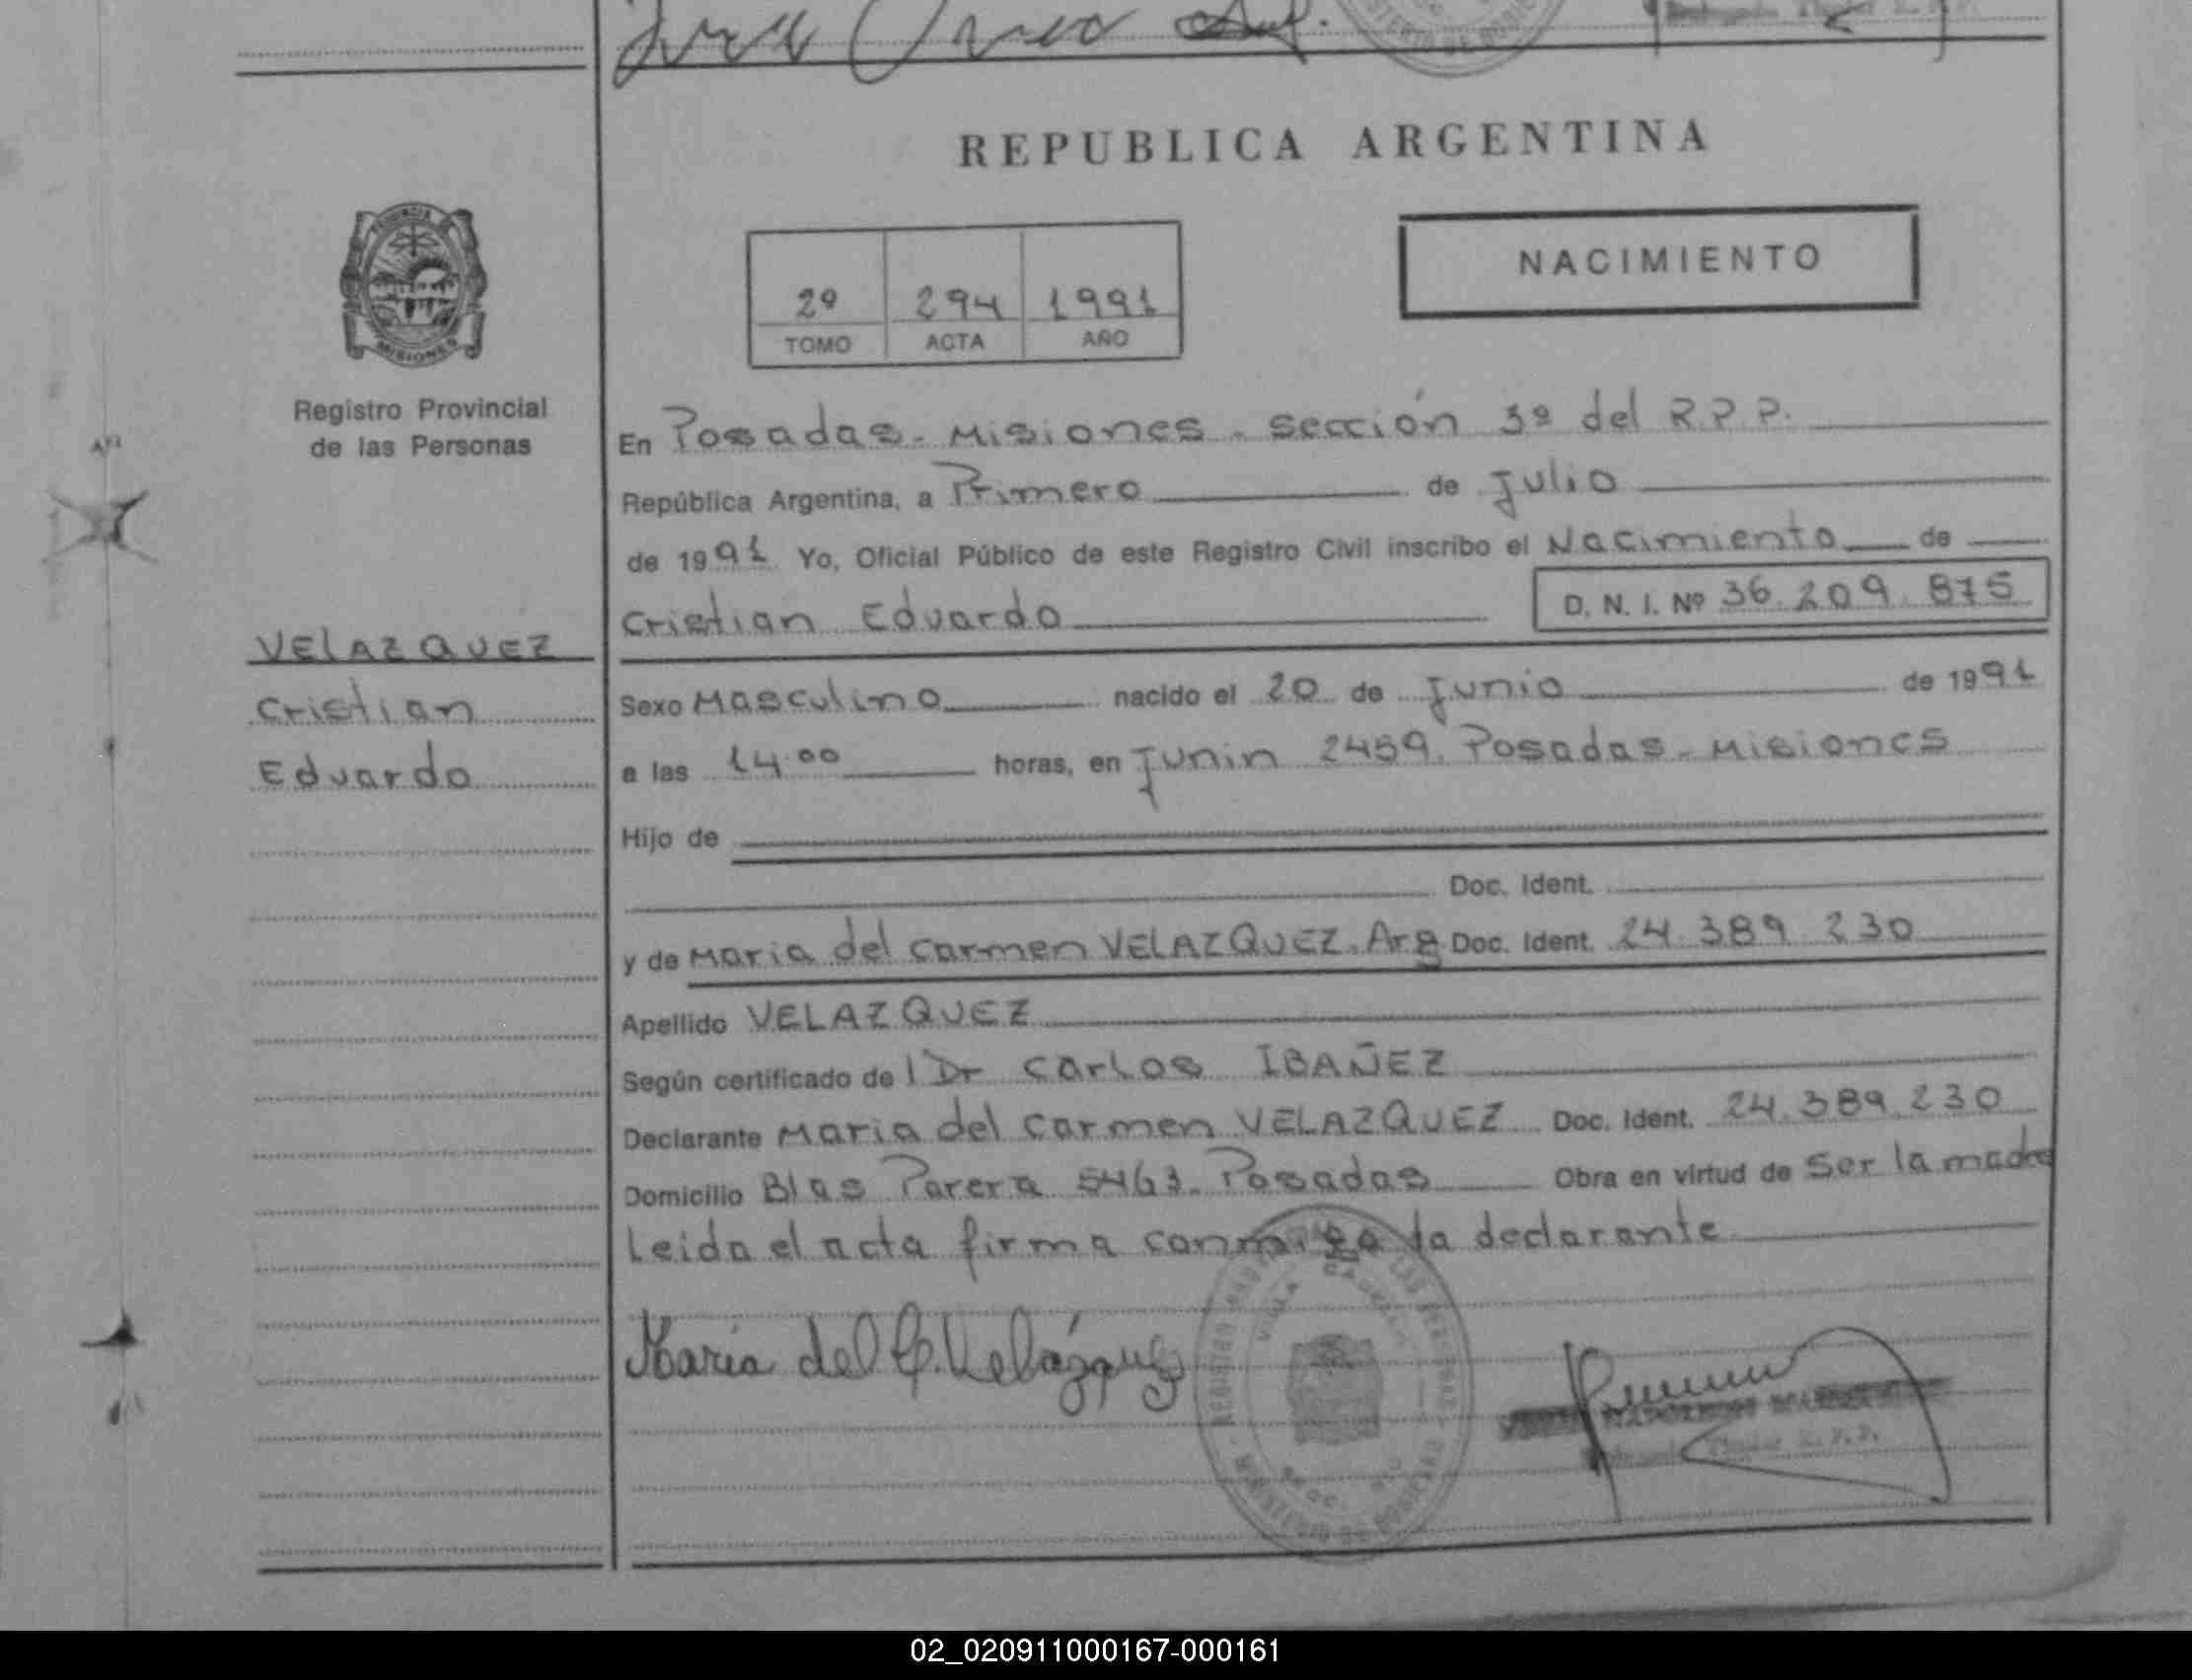 REPUBLICA ARGENTINA
NACIMIENTO
2º 294 1991
TOMO ACTA AÑO
PROVINCIA
MISIONES
Registro Provincial
de las Personas
VELAZQUEZ
Cristian
Eduardo
En Posadas - Misiones - sección 3º del R.P.P.
República Argentina, a Primero de Julio
de 1991 Yo, Oficial Público de este Registro Civil inscribo el Nacimiento de
Cristian Eduardo D. N. I. Nº 36.209.875
Sexo Masculino nacido el 20 de Junio de 1991
a las 14.00 horas, en Junin 2459. Posadas - Misiones
Hijo de
Doc. Ident.
y de Maria del Carmen VELAZQUEZ. Arg Doc. Ident. 24.389.230
Apellido VELAZQUEZ
Según certificado de l Dr Carlos IBAÑEZ
Declarante Maria del Carmen VELAZQUEZ Doc. Ident. 24.389.230
Domicilio Blas Parera 5463. Posadas Obra en virtud de Ser la madre
Leida el acta firma conmigo la declarante
María del C. Velázquez
02_020911000167-000161